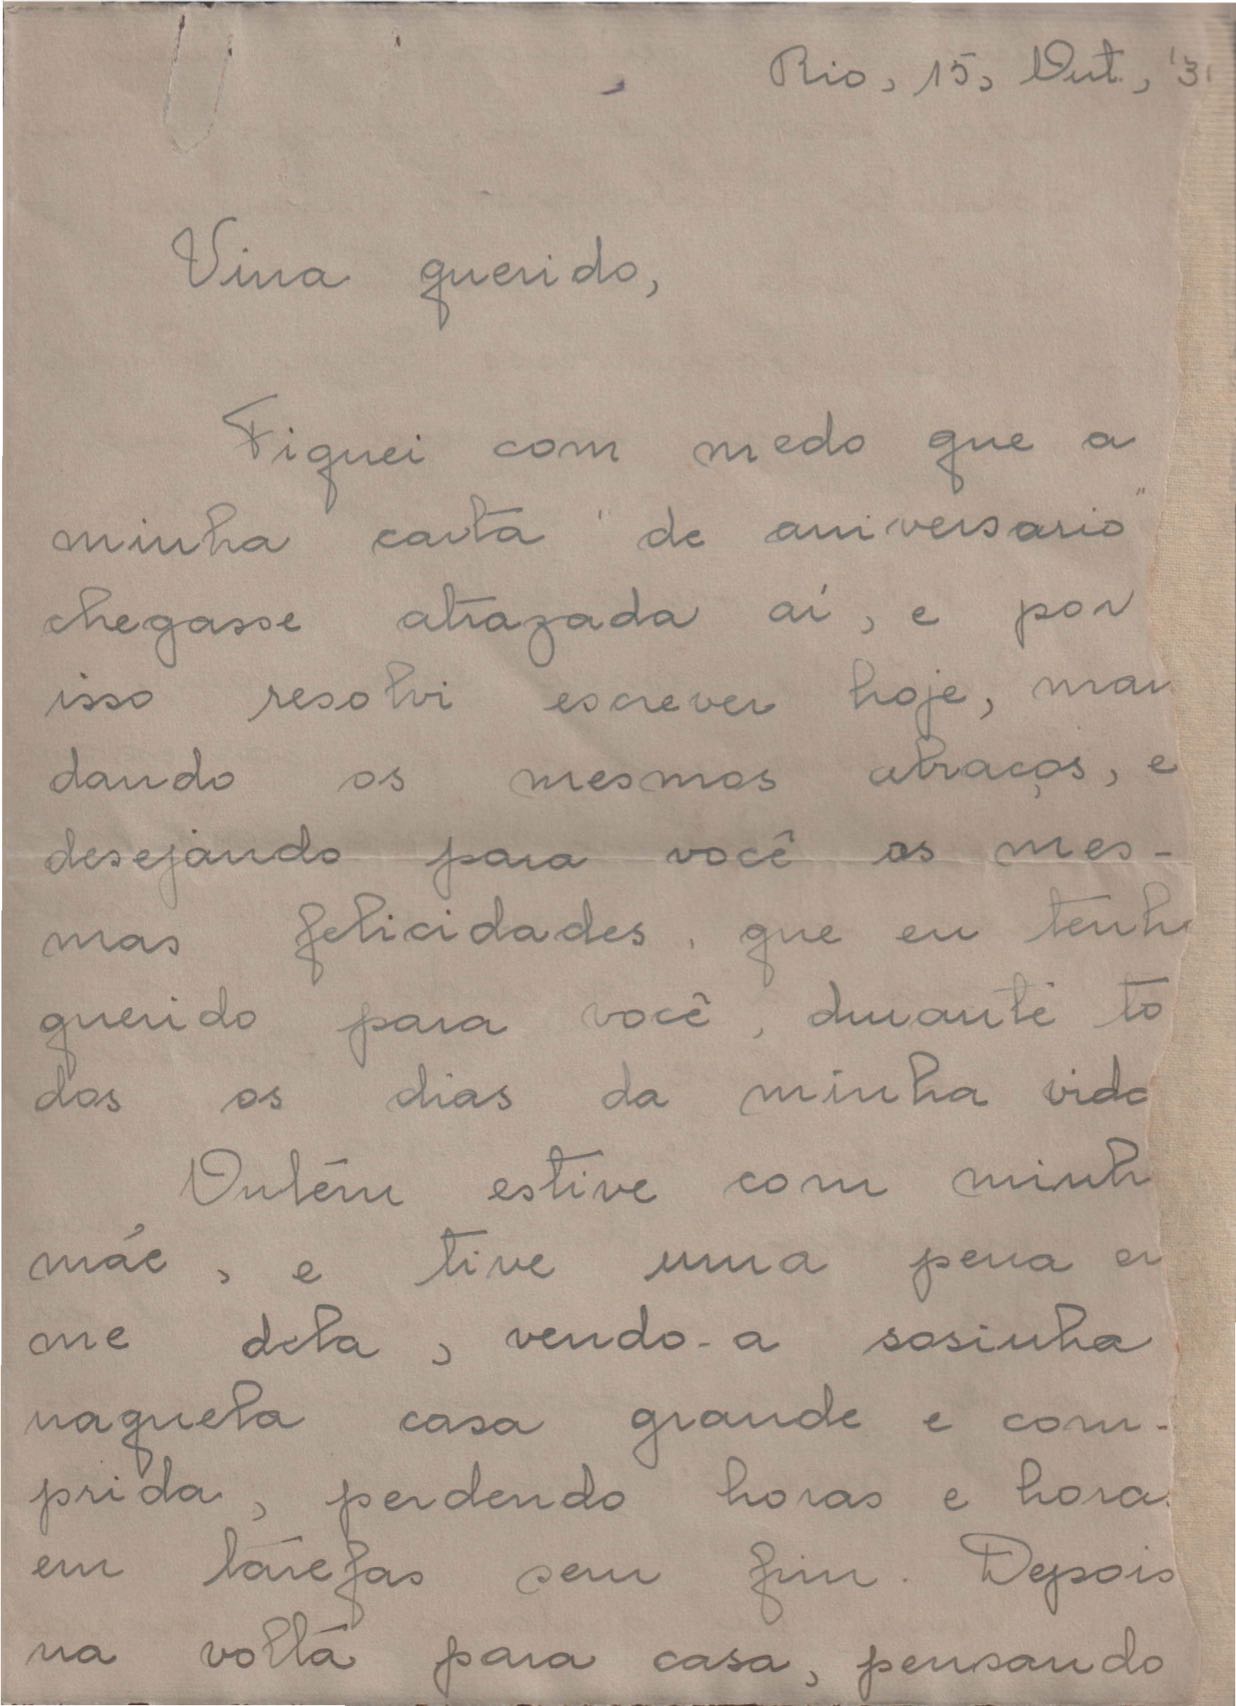 Rio, 15, Out., '3
Vina querido,
Fiquei com medo que a
minha carta "de aniversario"
chegasse atrazada aí, e por
isso resolvi escrever hoje, man
dando os mesmos abraços, e
desejando para você as mes-
mas felicidades, que eu tenho
querido para você, durante to
dos os dias da minha vida
Ontém estive com minh
mãe, e tive uma pena en
me dela, vendo-a sosinha
naquela casa grande e com-
prida, perdendo horas e horas
em tarefas sem fim. Depois
na volta para casa, pensando